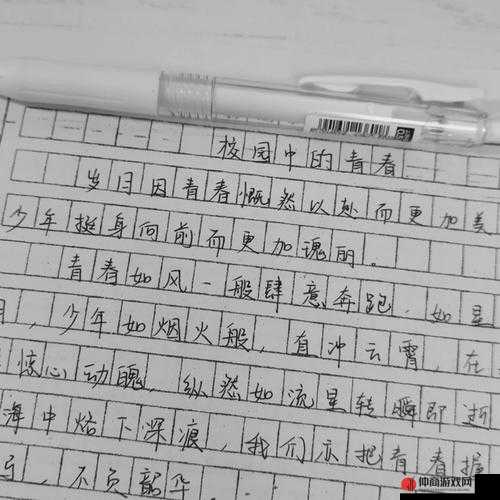 校园中的青春
岁月因青春慨然以赴而更加美
少年挺身向前而更加瑰丽。
青春如风一般肆意奔跑.如星
,少年如烟火般,直冲云霄,在
惊心动魄,纵然如流星转瞬即逝
海中烙下深痕,我们亦把青春握
,不负韶华...
仲商游戏网